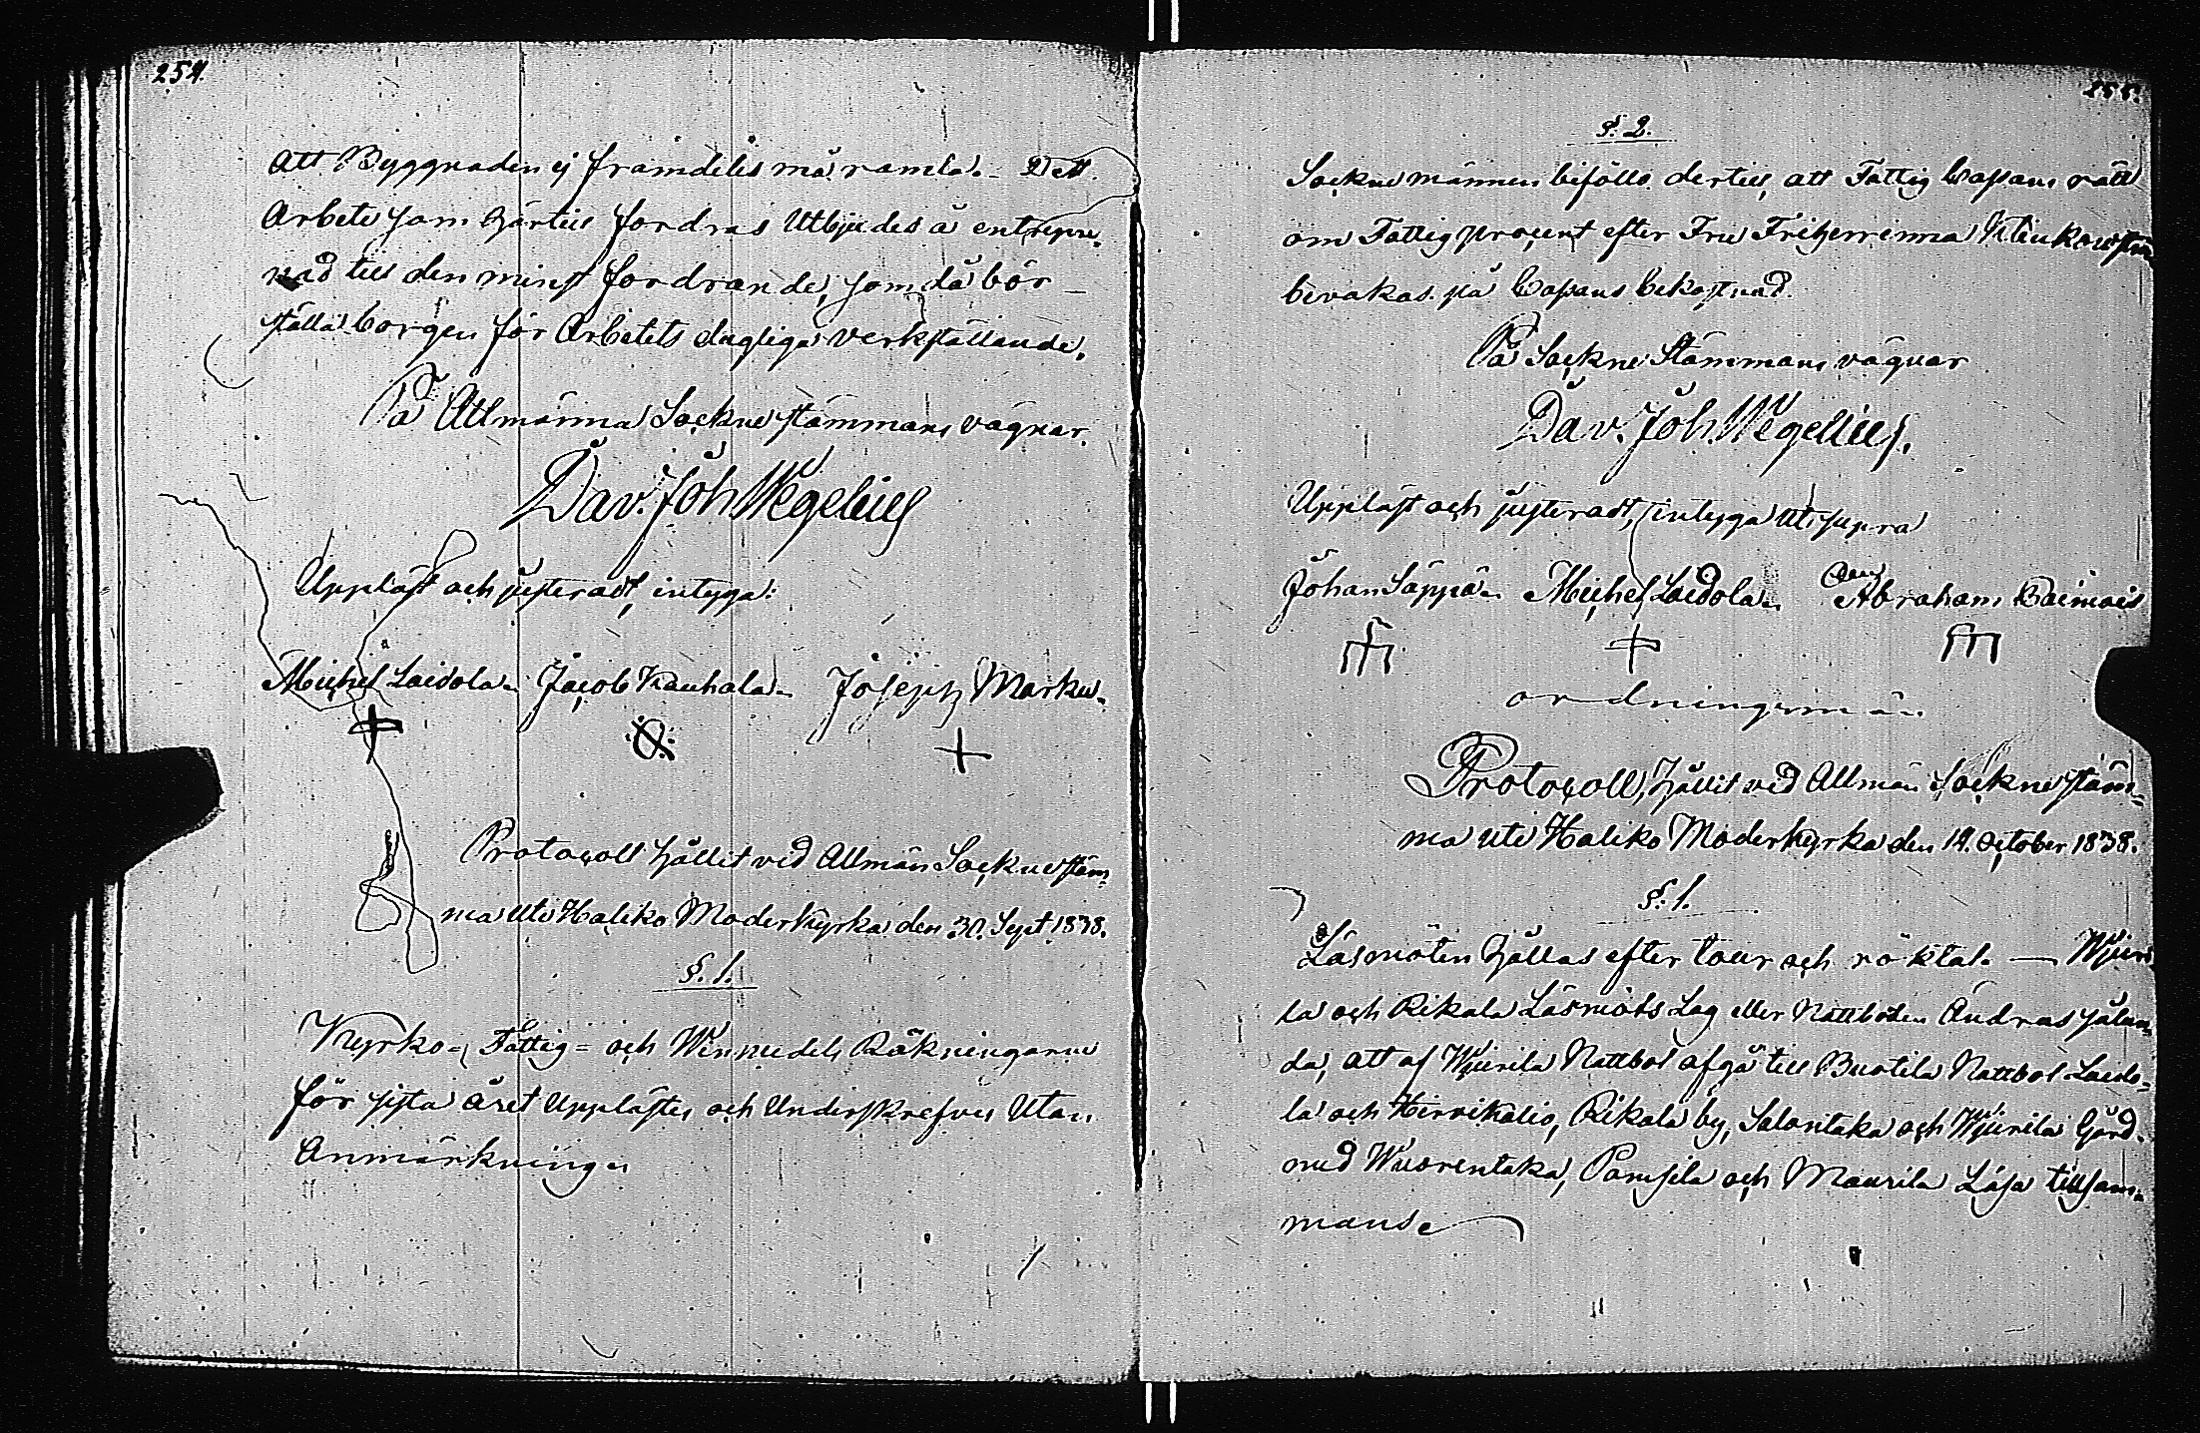 254.
att Byggnaden ej framdeles må ramla. - Dett
Arbete som härtill fordras Utbjudes å entrepre-
nad till den minst fordrande, som då bör
ställa borgen för Arbetets dugliga verkställande.
På Allmänna Sockne stämmans vägnar.
Dav. Joh. Wegelius
Uppläst och justeradt, intyga:
Michel Laidola. Jacob Kauhala. Joseph Marku.
Protocoll hållit vid Allmän Socknestäm-
ma uti Haliko Moderkyrka den 30. Sept. 1838.
§. 1.
Kyrko-, Fattig- och Winmedels Räkningarne
för sista året Upplästes och Underskrefves Utan
Anmärkning.
255.
§. 2.
Socknemännen biföllo dertill, att Fattig Cassans rätt
om Fattigprocent efter Fru Friherrinna
bevakas på Cassans bekostnad.
På Sockne Stämmans vägnar
Dav. Joh. Wegelius.
Uppläst och justeradt, intyga ut supra
Johan Säppä. Michel Laidola. Abraham
ordningsmän.
Protocoll, hållit vid Allmän Socknestäm-
ma uti Haliko Moderkyrka den 14. October 1838.
§. 1.
Läsmöten hållas efter tour och röktal. — Wjuri-
la och Rikala Läsmöts Lag eller Nattbolen Ändras sålun-
da, att af Wjurila Nattbol afgå till Buotila Nattbol Laido-
la och Hirvikalio, Rikala by, Salontaka och Wjurila Gård
med Wuorentaka, Pamsila och Maurila Läsa tillsam-
mans.